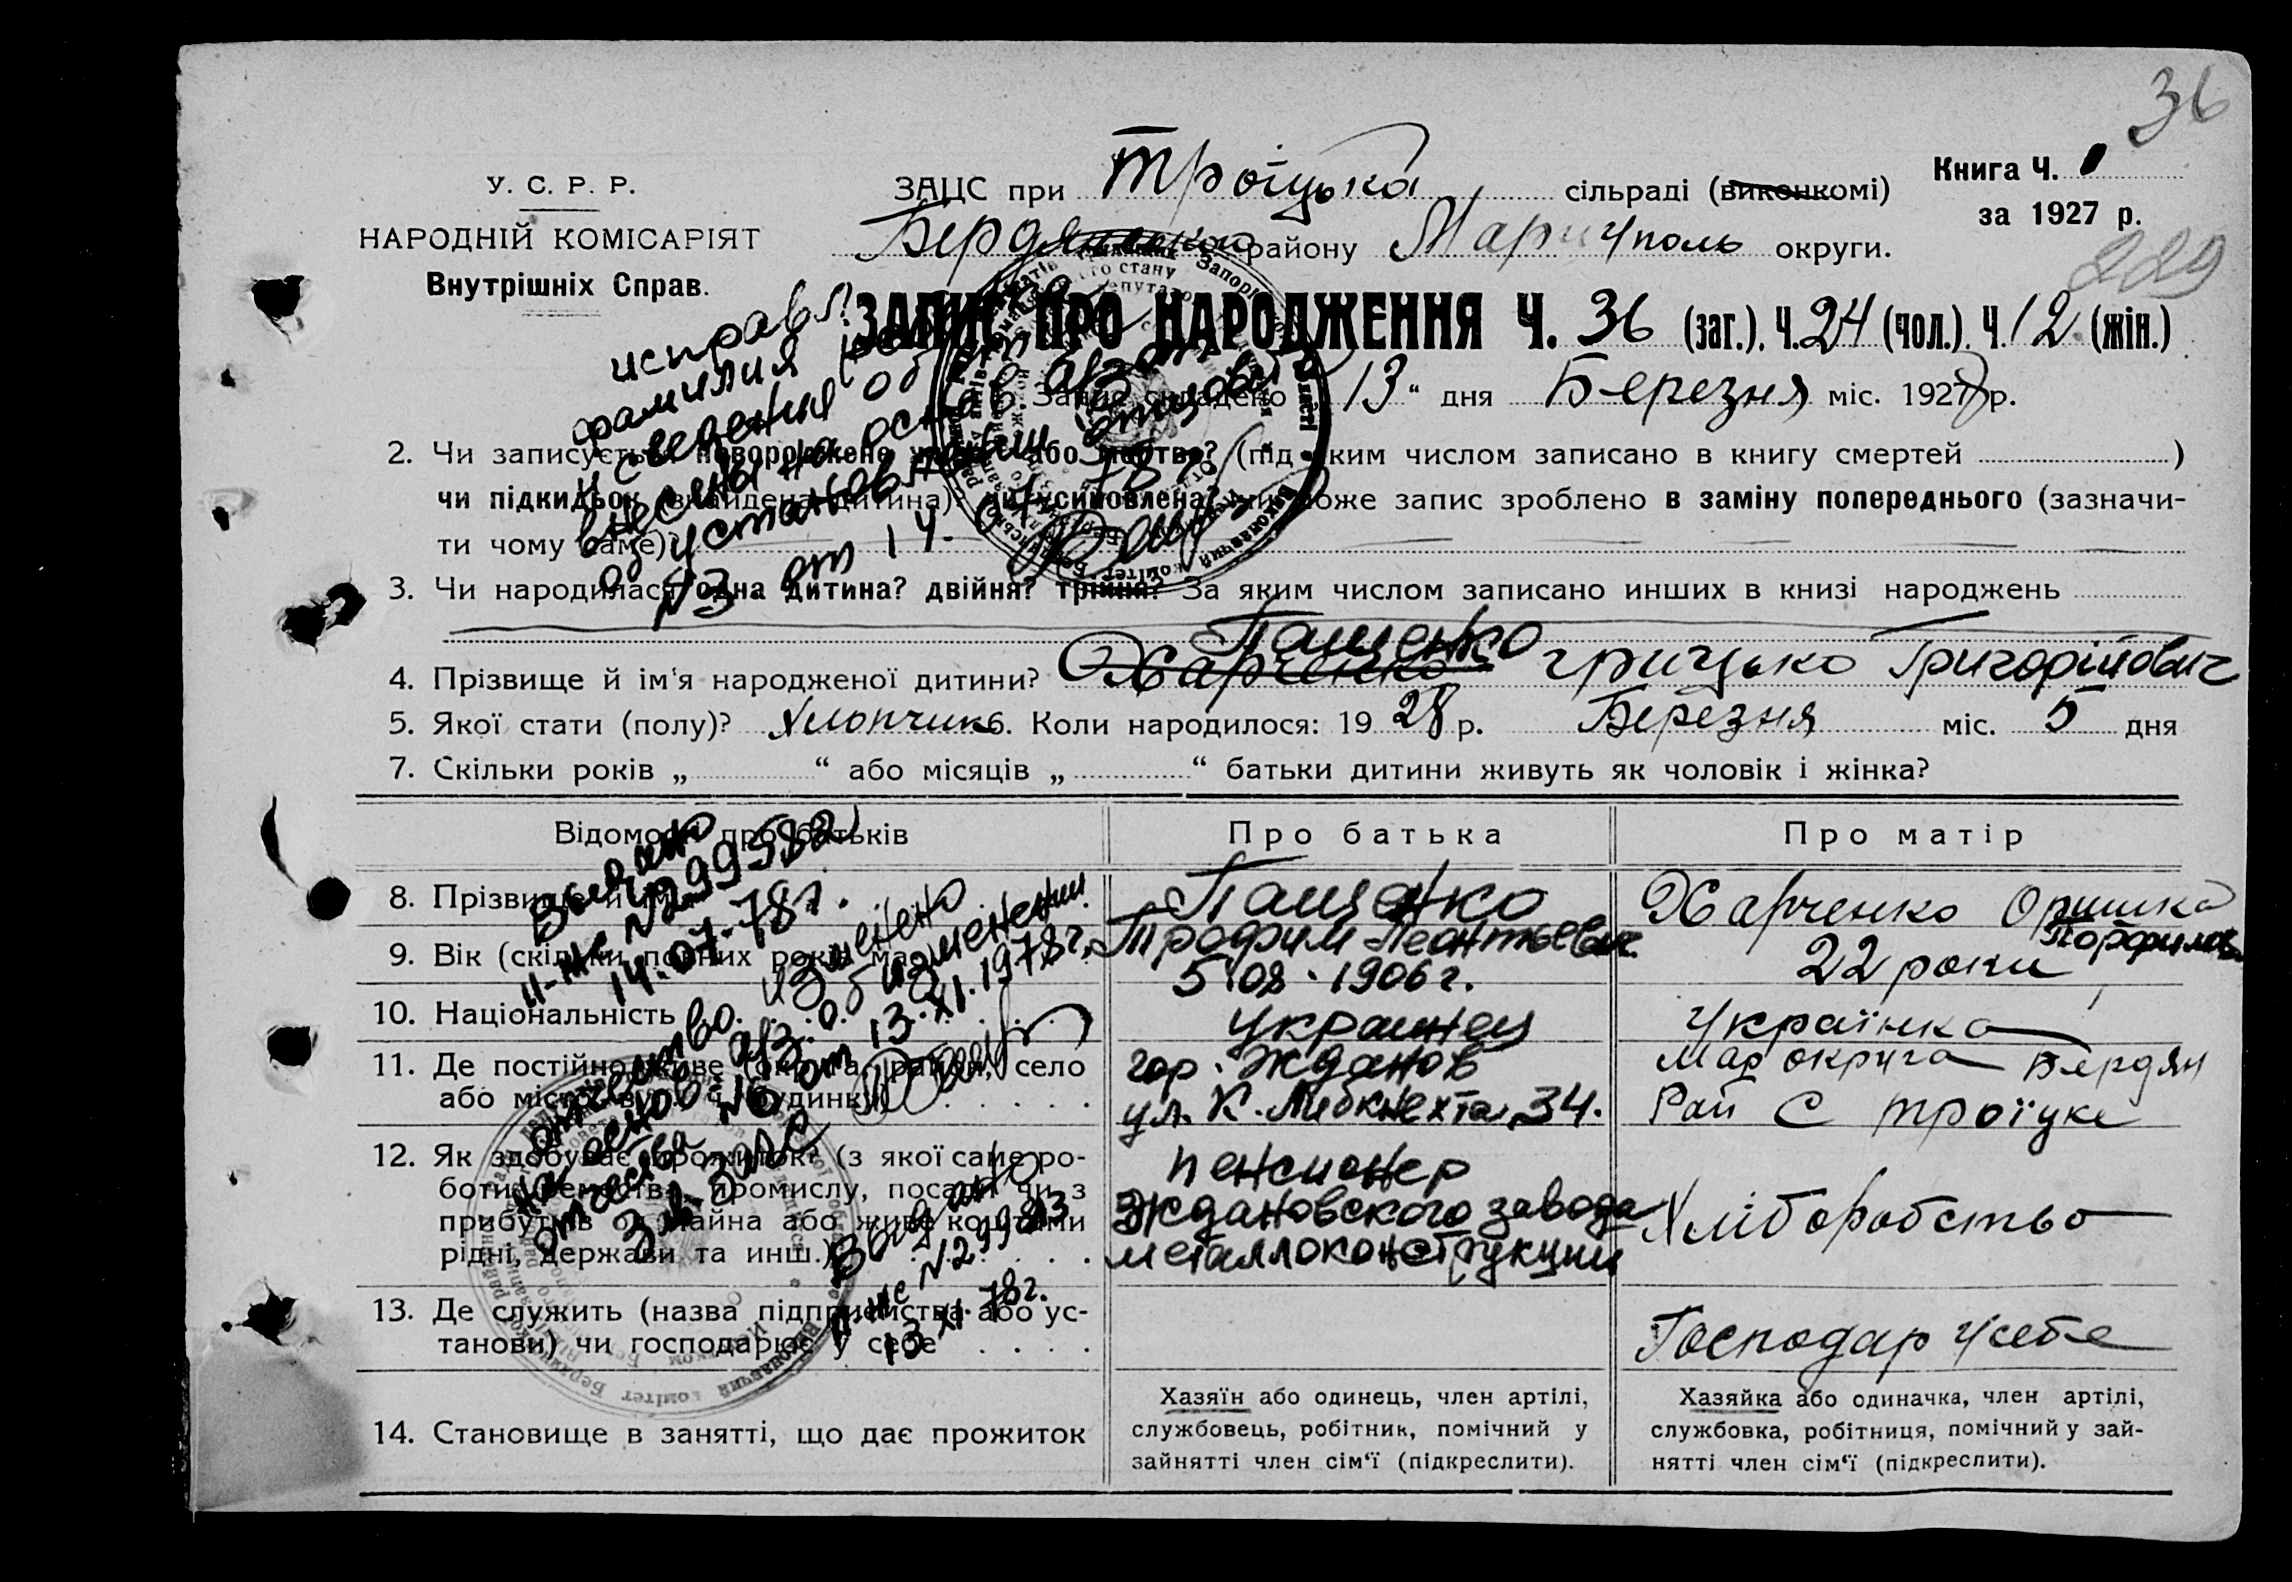 36
У. С. Р. Р.
НАРОДНІЙ КОМІСАРІЯТ
Внутрішніх Справ.
ЗАЦС при Троїцька сільраді (виконкомі)
Бердянського району Маріуполь округи.
Книга Ч. 1
за 1927 р.
229
ЗАПИС ПРО НАРОДЖЕННЯ Ч. 36 (заг.). Ч. 24 (чол.). Ч. 12 (жін.)
Запис складено 13“ дня Березня міс. 1928 р.
исправл.
фамилия
и сведения об отце
внесены на основ.
об установлении отцовства
№3 от 14.07.78г.
2. Чи записується новороджене живе? або мертве? (під яким числом записано в книгу смертей )
чи підкидьок (знайдена дитина), чи усиновлена? чи може запис зроблено в заміну попереднього (зазначи-
ти чому саме)?
3. Чи народилася одна дитина? двійня? трійня? За яким числом записано инших в книзі народжень
Пащенко
4. Прізвище й ім‘я народженої дитини? Харченко Грицько Григорійович
5. Якої стати (полу)? Хлопчик 6. Коли народилося: 1928 р. Березня міс. 5 дня
7. Скільки років „ “ або місяців „ “ батьки дитини живуть як чоловік і жінка?
Відомості про батьків Про батька Про матір
8. Прізвище й ім‘я
Пащенко
Трофим Леонтьевич
Харченко Оришка
Порфилов
9. Вік (скільки повних років має)
5.08.1906г.
22 роки
10. Національність
украинец
Українка
11. Де постійно живе (округа, район, село
або місто, вул., ч. будинку)
гор. Жданов
ул. К. Либкнехта 34.
Мар округа Бердян
Рай С Троїцке
12. Як здобуває прожиток? (з якої саме ро-
боти, ремества, промислу, посади чи з
прибутків од майна або живе коштами
рідні, держави та инш.)
пенсионер
Ждановского завода
металлоконструкции
Хліборобство
13. Де служить (назва підприємства або ус-
танови) чи господарює у себе
Господар у себе
14. Становище в занятті, що дає прожиток
Хазяїн або одинець, член артілі,
службовець, робітник, помічний у
зайнятті член сім‘ї (підкреслити).
Хазяйка або одиначка, член артілі,
службовка, робітниця, помічний у зай-
нятті член сім‘ї (підкреслити).
Выдано
II-ЖС №299582
14.07.78г.
отчество изменено
на основ. а/з об изменении
отчества №6 от 13.XI.1978г.
Выдано
II-ЖС №299893
13.XI.78г.